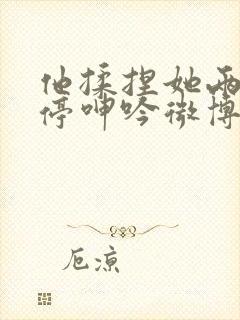 他揉捏她两
停呻吟微博
厄凉